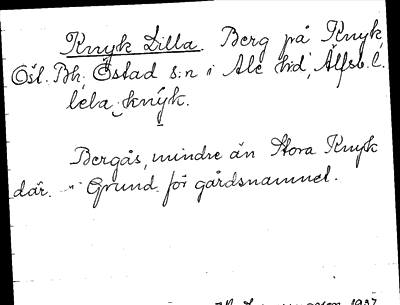 Knyk Lilla. Berg på Knyk,
Östl. Bh. Östad s:n i Ale hd, Älfsb. l.
lẹla knýk.
Bergås, mindre än Stora Knyk
där. – Grund för gårdsnamnet.
1937